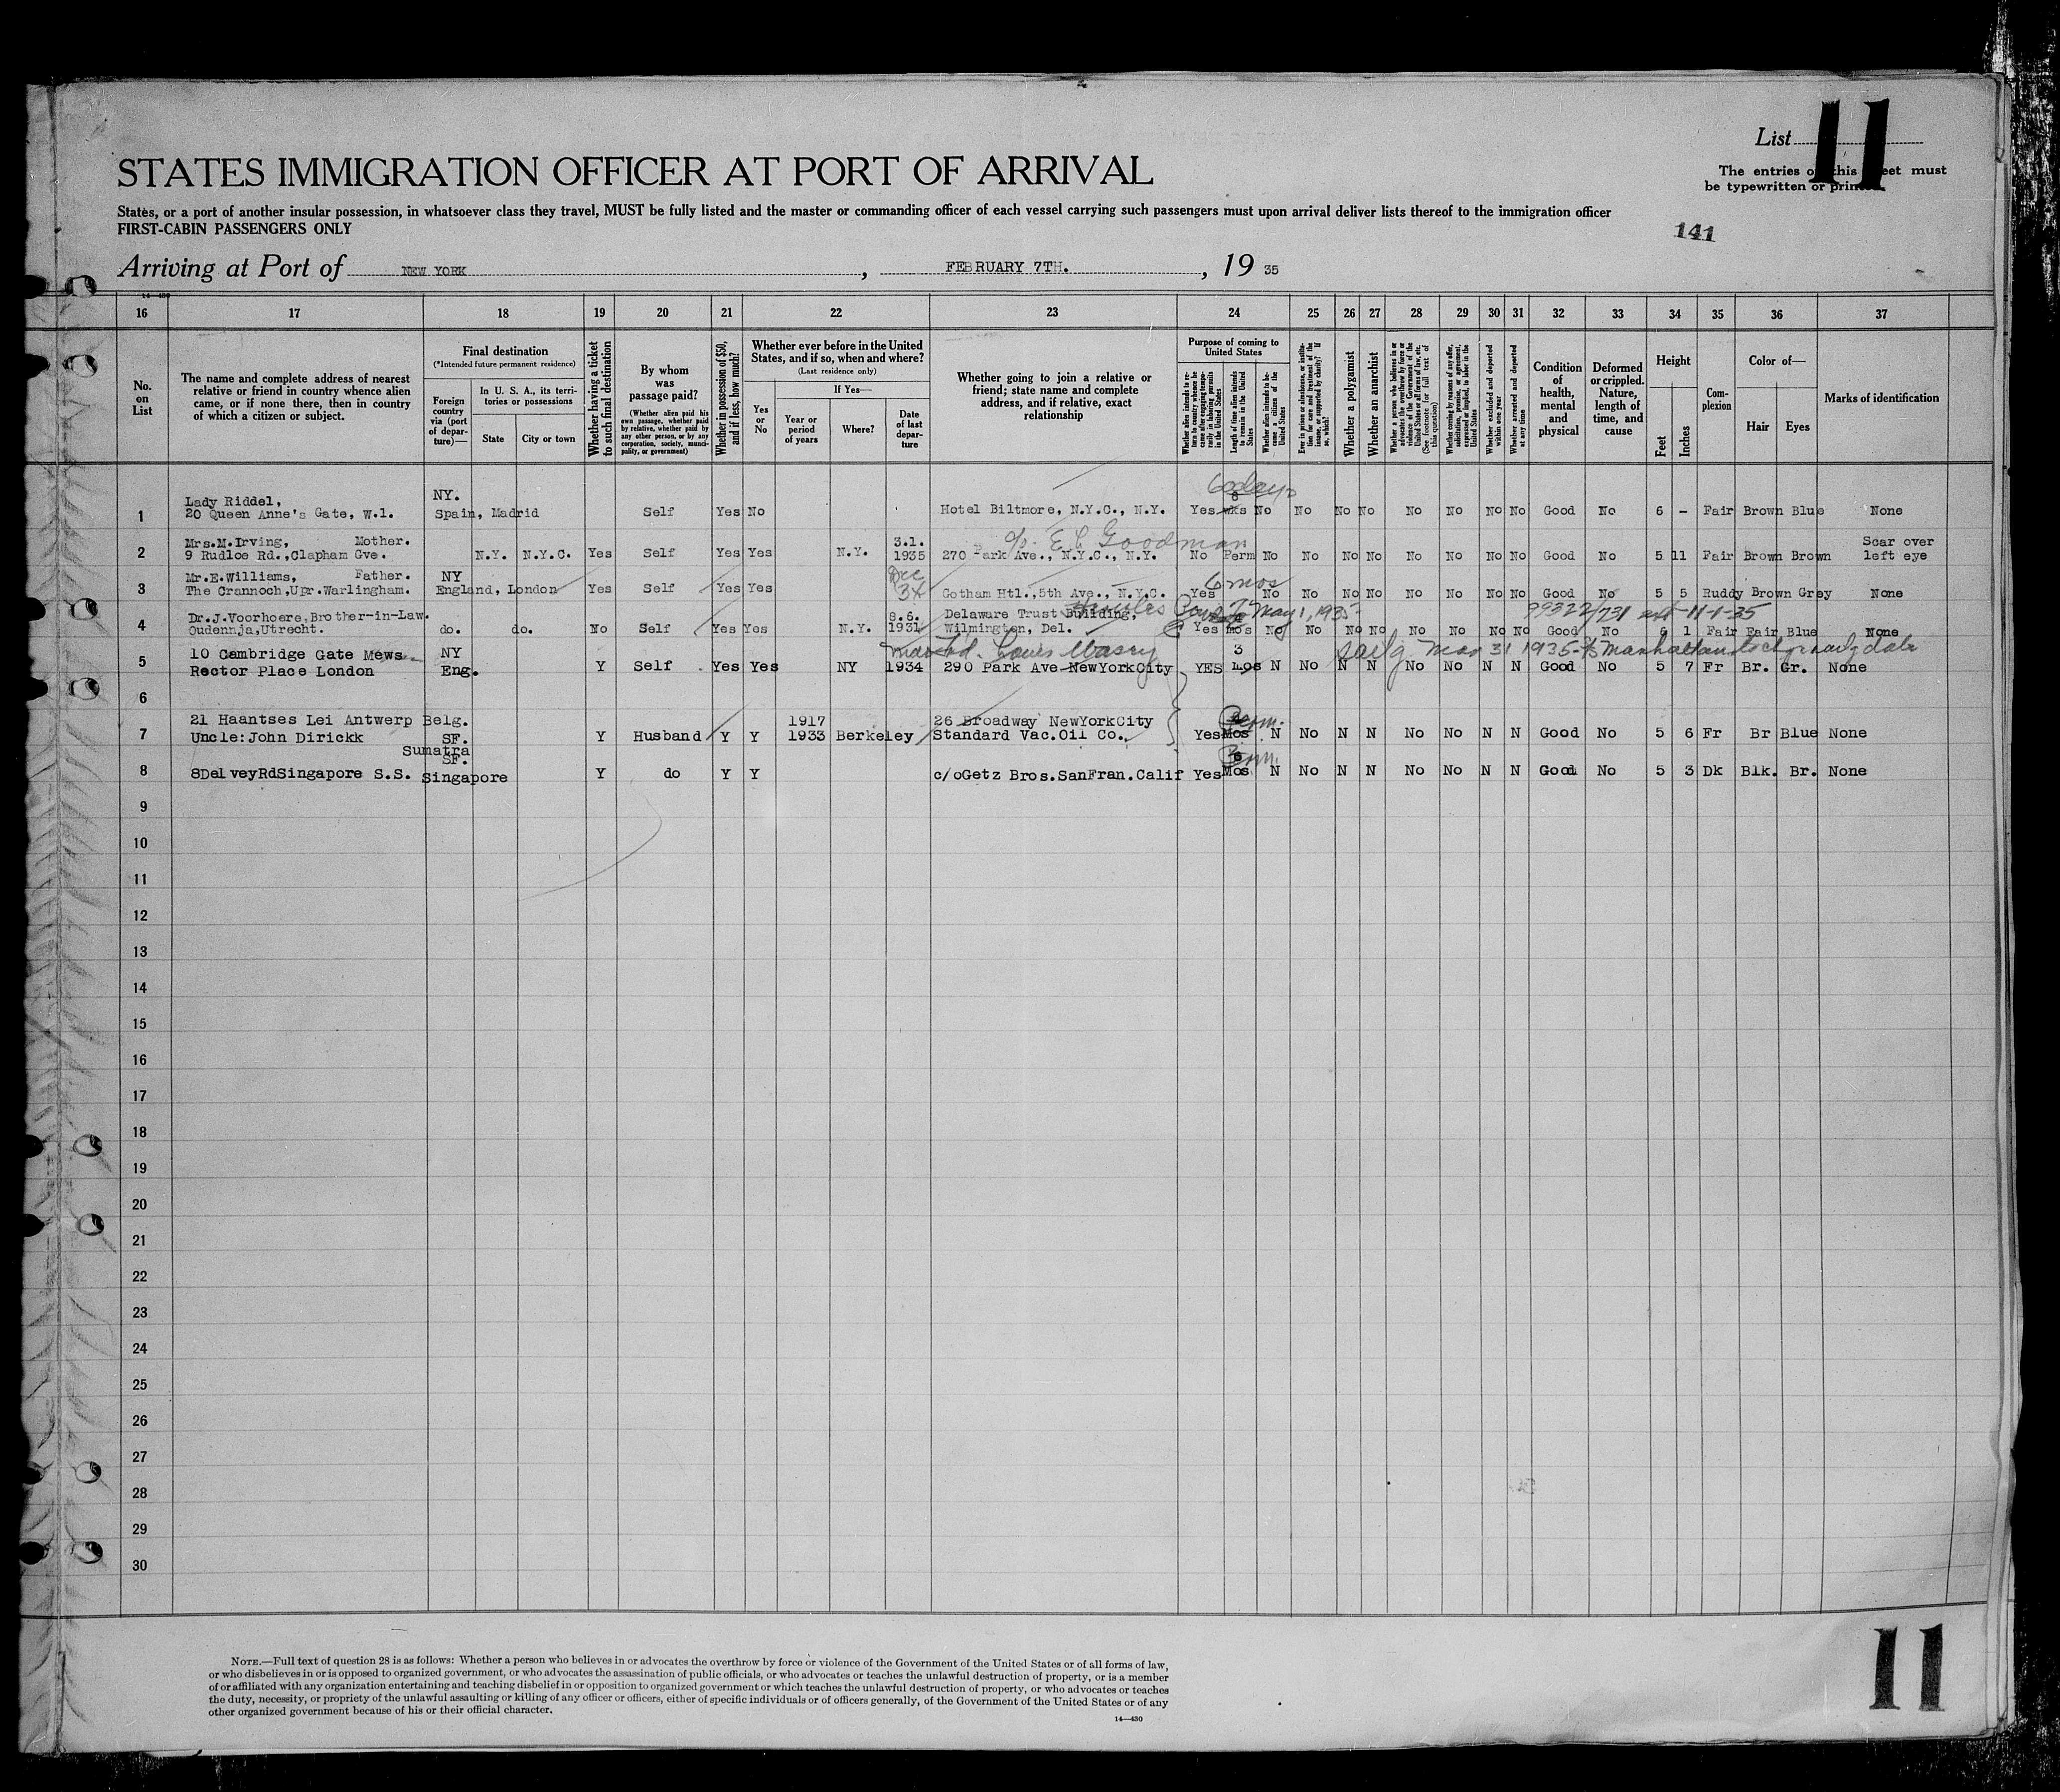 List 11
STATES IMMIGRATION OFFICER AT PORT OF ARRIVAL
The entries on this sheet must
be typewritten or printed.
States, or a port of another insular possession, in whatsoever class they travel, MUST be fully listed and the master or commanding officer of each vessel carrying such passengers must upon arrival deliver lists thereof to the immigration officer
FIRST-CABIN PASSENGERS ONLY
141
Arriving at Port of NEW YORK, FEBRUARY 7TH., 19 35
14-430
16 17 18 19 20 21 22 23 24 25 26 27 28 29 30 31 32 33 34 35 36 37
No. on List
The name and complete address of nearest relative or friend in country whence alien came, or if none there, then in country of which a citizen or subject.
Final destination
(*Intended future permanent residence)
Foreign country via (port of departure)—
In U. S. A., its territories or possessions
State
City or town
Whether having a ticket to such final destination
By whom was passage paid?
(Whether alien paid his own passage, whether paid by relative, whether paid by any other person, or by any corporation, society, municipality, or government)
Whether in possession of $50, and if less, how much?
Whether ever before in the United States, and if so, when and where?
(Last residence only)
Yes or No
If Yes—
Year or period of years
Where?
Date of last departure
Whether going to join a relative or friend; state name and complete address, and if relative, exact relationship
Purpose of coming to United States
Whether alien intends to return to country whence he came after engaging temporarily in laboring pursuits in the United States
Length of time alien intends to remain in the United States
Whether alien intends to become a citizen of the United States
Ever in prison or almshouse, or institution for care and treatment of the insane, or supported by charity? If so, which?
Whether a polygamist
Whether an anarchist
Whether a person who believes in or advocates the overthrow by force or violence of the Government of the United States or all forms of law, etc. (See footnote for full text of this question)
Whether coming by reasons of any offer, solicitation, promise, or agreement, expressed or implied, to labor in the United States
Whether excluded and deported within one year
Whether arrested and deported at any time
Condition of health, mental and physical
Deformed or crippled. Nature, length of time, and cause
Height
Feet
Inches
Complexion
Color of—
Hair
Eyes
Marks of identification
60 days
1 Lady Riddel, 20 Queen Anne's Gate, W.1. NY. Spain, Madrid Self Yes No Hotel Biltmore, N.Y.C., N.Y. Yes 8 wks No No No No No No No No Good No 6 - Fair Brown Blue None
c/o E C Goodman
2 Mrs.M.Irving, Mother. 9 Rudloe Rd.,Clapham Gve. N.Y. N.Y.C. Yes Self Yes Yes N.Y. 3.1. 1935 270 Park Ave., N.Y.C., N.Y. No Perm No No No No No No No No Good No 5 11 Fair Brown Brown Scar over left eye
3 Mr.E.Williams, Father. The Crannoch,Upr.Warlingham. NY England, London Yes Self Yes Yes Dec 34 Gotham Htl.,5th Ave., N.Y.C. Yes 6 mos No No No No No No No No Good No 5 5 Ruddy Brown Grey None
Hercules May 1, 1935 99322/731 ext-11-1-35
4 Dr.J.Voorhoere,Brother-in-Law. Oudennja,Utrecht. do. do. No Self Yes Yes N.Y. 8.6. 1931 Delaware Trust Building, Wilmington, Del. Yes mos No No No No No No No No Good No 6 1 Fair Fair Blue None
Louis Massey sail'g Mar 31 1935 Manhattan
5 10 Cambridge Gate Mews Rector Place London NY Eng. Y Self Yes Yes NY 1934 290 Park Ave NewYorkCity YES 3 Mos N No N N No No N N Good No 5 7 Fr Br. Gr. None
6
7 21 Haantses Lei Antwerp Belg. Uncle:John Dirickk SF. Sumatra Y Husband Y Y 1917 1933 Berkeley 26 Broadway NewYorkCity Standard Vac.Oil Co. Yes Mos Perm. N No N N No No N N Good No 5 6 Fr Br Blue None
8 8DelveyRdSingapore S.S. SF. Singapore Y do Y Y c/oGetz Bros.SanFran.Calif Yes 6 Mos N No N N No No N N Good No 5 3 Dk Blk. Br. None
9
10
11
12
13
14
15
16
17
18
19
20
21
22
23
24
25
26
27
28
29
30
NOTE.—Full text of question 28 is as follows: Whether a person who believes in or advocates the overthrow by force or violence of the Government of the United States or of all forms of law,
or who disbelieves in or is opposed to organized government, or who advocates the assassination of public officials, or who advocates or teaches the unlawful destruction of property, or is a member
of or affiliated with any organization entertaining and teaching disbelief in or opposition to organized government or which teaches the unlawful destruction of property, or who advocates or teaches
the duty, necessity, or propriety of the unlawful assaulting or killing of any officer or officers, either of specific individuals or of officers generally, of the Government of the United States or of any
other organized government because of his or their official character.
14—430
11